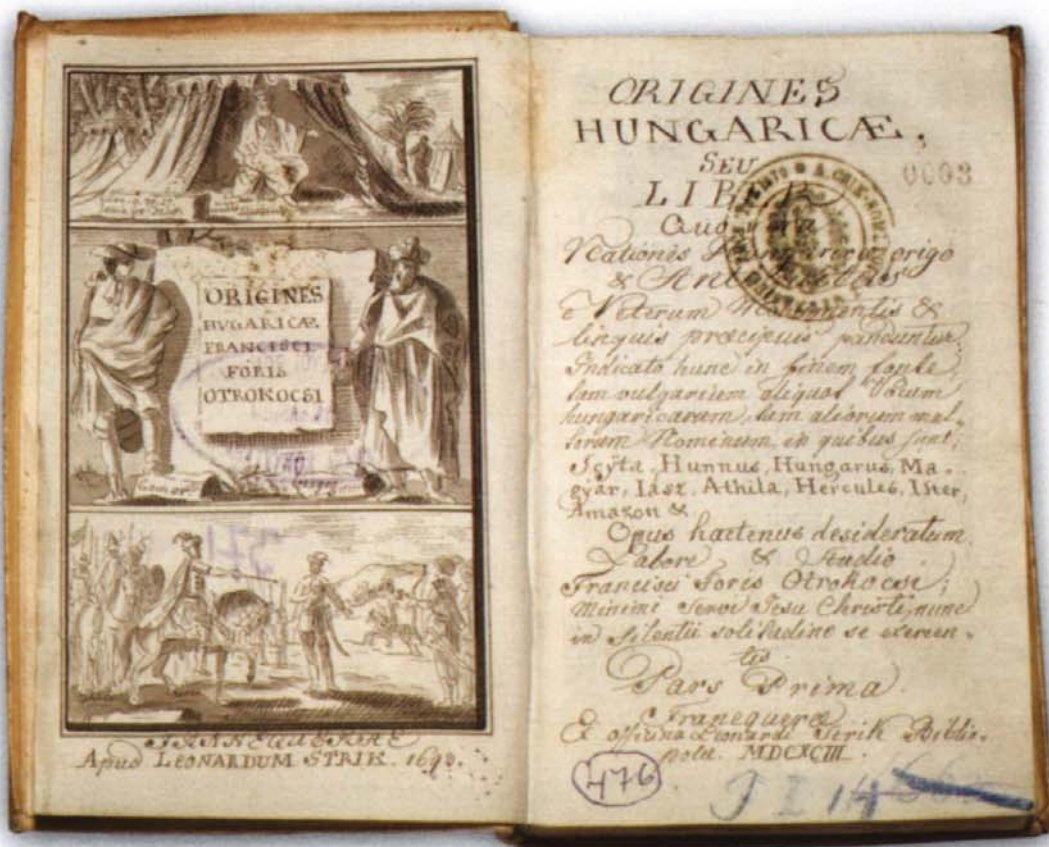 ORIGINES
HUGARICÆ
FRANCISCI
FORIS
OTROKOCSI
Gomer
Apud LEONARDUM STRIK. 1693.
ORIGINES
HUNGARICÆ,
SEU
LIBER
Nationis origo
&
e Veterum &
linguis præcipuis panduntur.
Indicato hunc in finem fonte
tam vulgarium aliquot Vocum
hungaricarum, tum aliorum mul-
torum Nominum, in quibus sunt;
Scÿta, Hunnus, Hungarus, Ma-
gyar, Iasz, Athila, Hercules, Ister,
Amazon &
Opus hactenus desideratum.
Labore & Studio
Francisci Foris Otrokocsi;
Minimi Servi Jesu Christi, nunc
in Silentii solitudine se exercen-
tis.
Pars Prima.
Franequeræ
Ex officina Leonardi Strik Biblio-
polæ. MDCXCIII.
0003
476